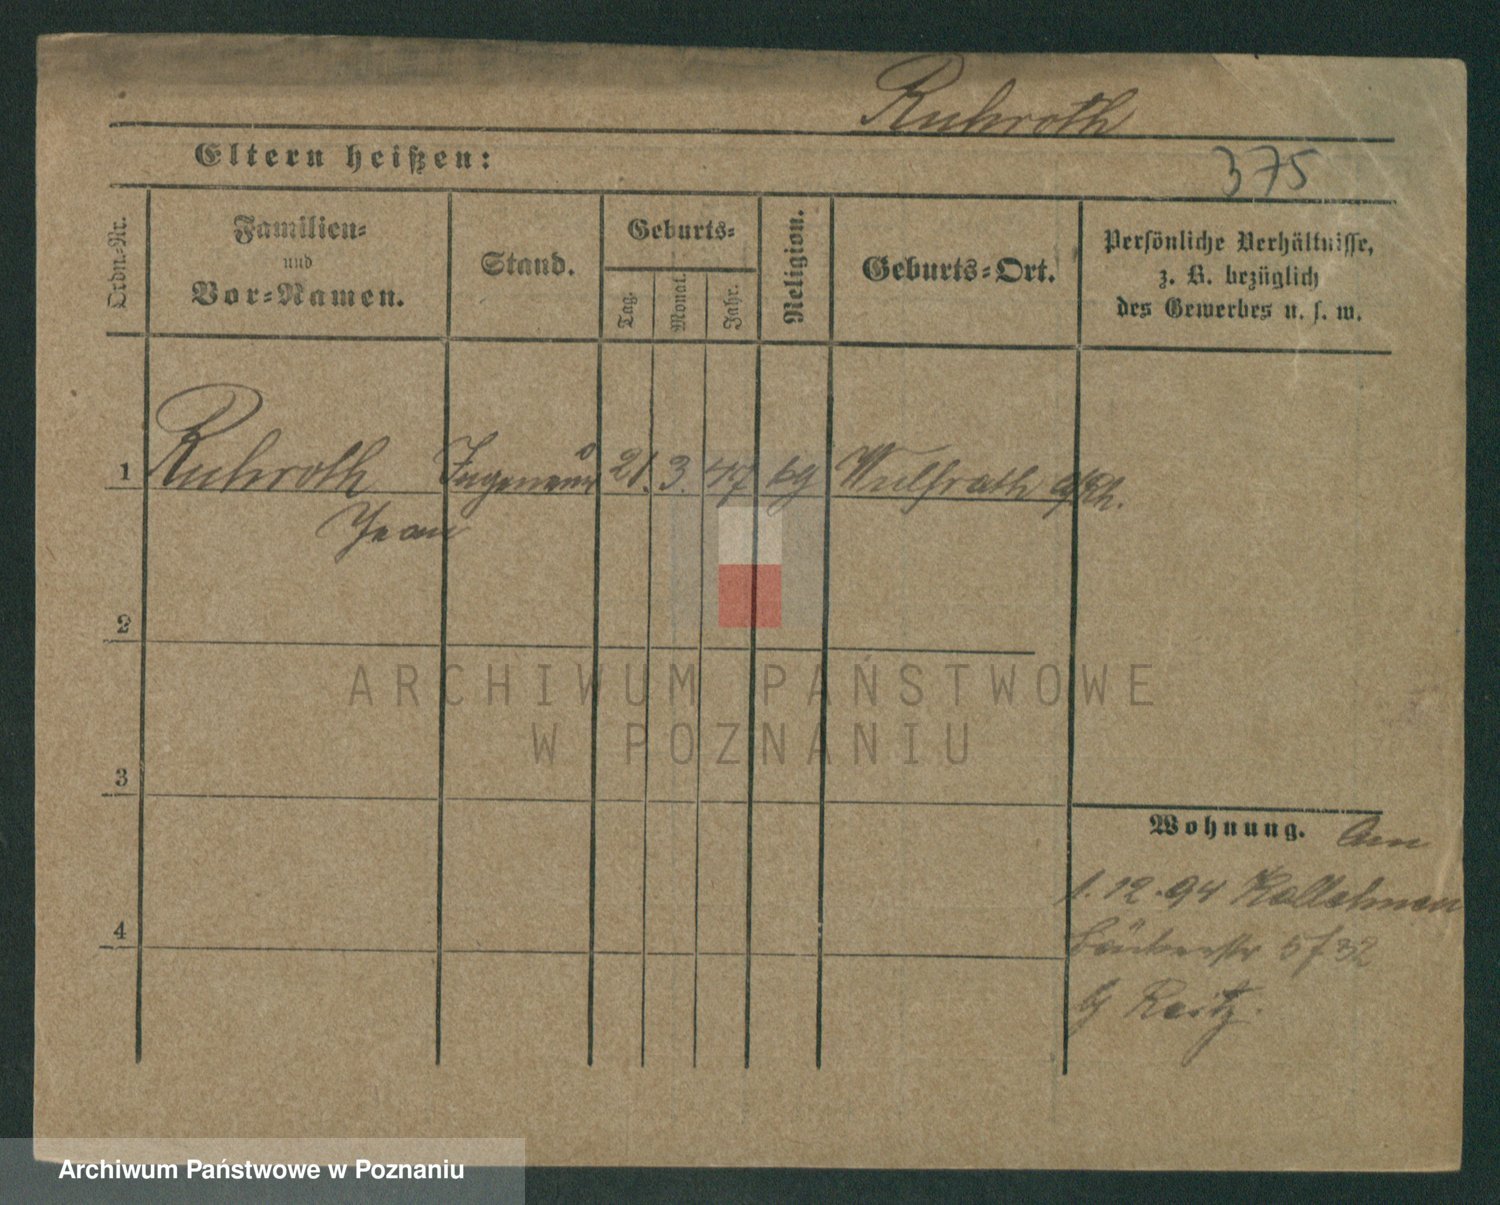 Ruhroth
Eltern heißen:
375
Ordn.-Nr.
Familien-
und
Vor-Namen.
Stand.
Geburts-
Tag.
Monat.
Jahr.
Religion.
Geburts-Ort.
Persönliche Verhältnisse,
z. B. bezüglich
des Gewerbes u. s. w.
1 Ruhroth Ingenieur 21. 3. 47 Wulfrath
Jean
2
3
4
Wohnung. Am
1.12.94
32
Reitz.
ARCHIWUM PAŃSTWOWE
W POZNANIU
Archiwum Państwowe w Poznaniu